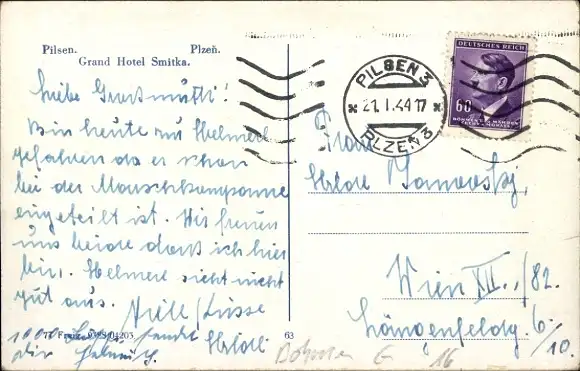 Pilsen. Plzeň.
Grand Hotel Smitka.
Liebe Großmutti!
Bin heute zu Helmerl
gefahren da er schon
bei der Marschkompanie
eingeteilt ist. Wir freuen
uns beide daß ich hier
bin. Helmerl sieht nicht
gut aus. Viele Küsse
Hilde
1000 sendet
dir Helmut
77 63
PILSEN 3
21. I. 44 17
PLZEŇ 3
DEUTSCHES REICH
60
BÖHMEN U. MÄHREN
ČECHY A MORAVA
Frau
Hilde
Wien XII., /82.
Längenfeldg. 6
/10.
Böhmen 6 16